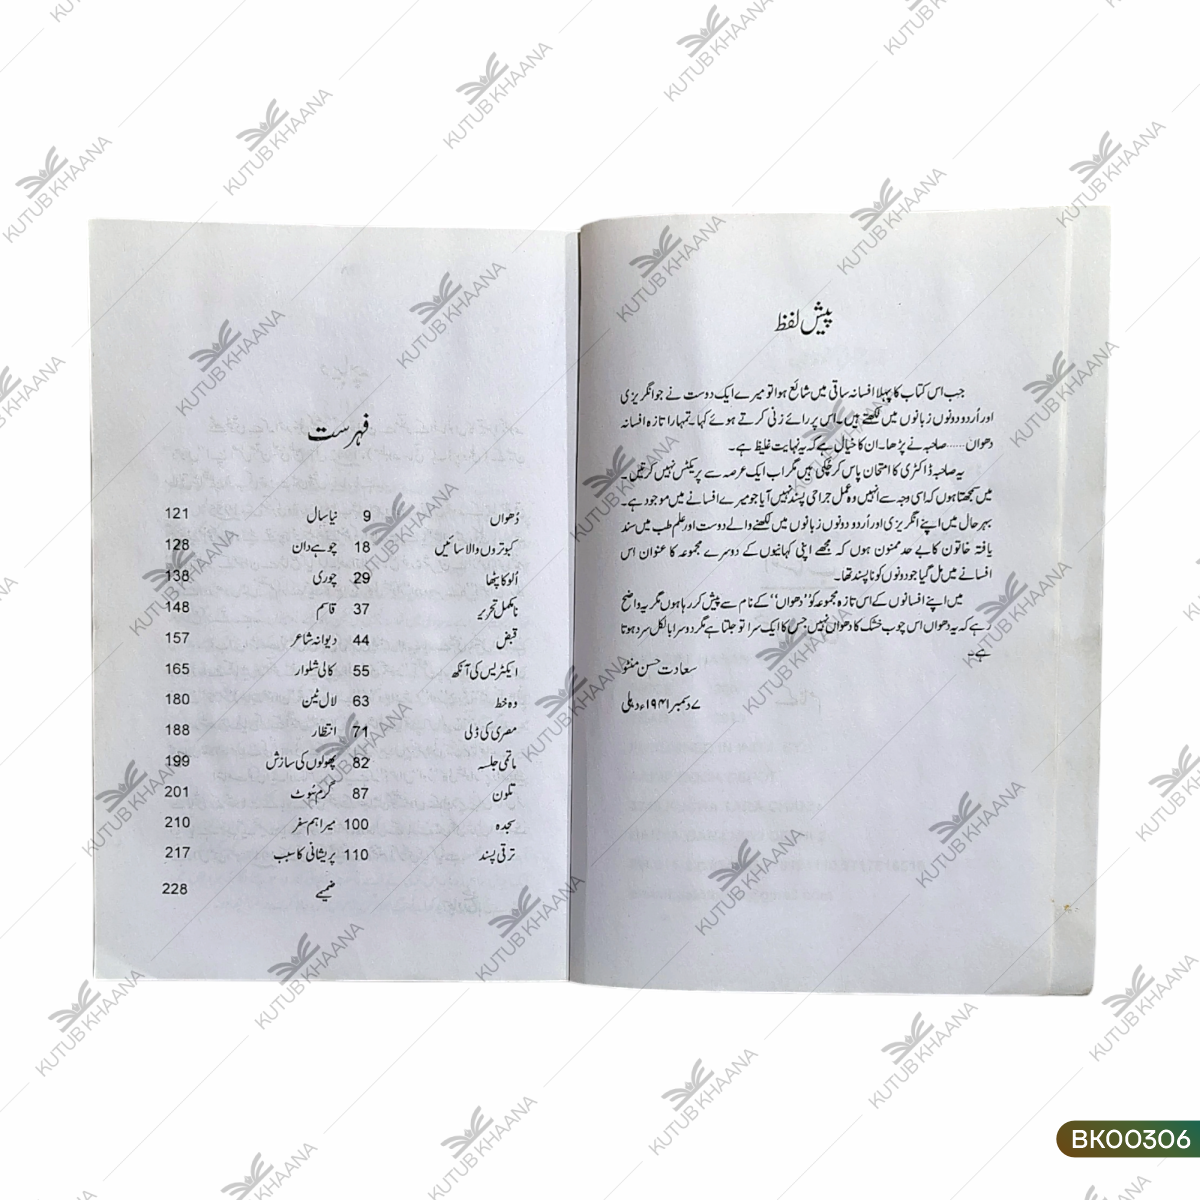 پیش لفظ
جب اس کتاب کا پہلا افسانہ ساقی میں شائع ہوا تو میرے ایک دوست نے جو انگریزی
اور اُردو دونوں زبانوں میں لکھتے ہیں۔ اس پر رائے زنی کرتے ہوئے کہا۔ تمہارا تازہ افسانہ
دھواں...... صاحبہ نے پڑھا۔ ان کا خیال ہے کہ یہ نہایت غلیظ ہے۔
یہ صاحبہ ڈاکٹری کا امتحان پاس کر چکی ہیں مگر اب ایک عرصہ سے پریکٹس نہیں کرتیں۔
میں سمجھتا ہوں کہ اسی وجہ سے انہیں وہ عمل جراحی پسند نہیں آیا جو میرے افسانے میں موجود ہے۔
بہر حال میں اپنے انگریزی اور اُردو دونوں زبانوں میں لکھنے والے دوست اور علم طب میں سند
یافتہ خاتون کا بے حد ممنون ہوں کہ مجھے اپنی کہانیوں کے دوسرے مجموعہ کا عنوان اس
افسانے میں مل گیا جو دونوں کو ناپسند تھا۔
میں اپنے افسانوں کے اس تازہ مجموعہ کو ''دھواں'' کے نام سے پیش کر رہا ہوں مگر یہ واضح
رہے کہ یہ دھواں اس چوب خشک کا دھواں نہیں جس کا ایک سرا تو جلتا ہے مگر دوسرا بالکل سرد ہوتا
ہے۔
سعادت حسن منٹو
۷ دسمبر ۱۹۴۱ء دہلی
فہرست
دُھواں 9 نیا سال 121
کبوتروں والا سائیں 18 چوہے دان 128
اُلو کا پٹھا 29 چوری 138
نامکمل تحریر 37 قاسم 148
قبض 44 دیوانہ شاعر 157
ایکٹریس کی آنکھ 55 کالی شلوار 165
وہ خط 63 لال ٹین 180
مصری کی ڈلی 71 انتظار 188
ماتمی جلسہ 82 پھولوں کی سازش 199
تلون 87 گرم سُوٹ 201
سجدہ 100 میرا ہم سفر 210
ترقی پسند 110 پریشانی کا سبب 217
ضمیمے 228
KUTUB KHAANA
BK00306